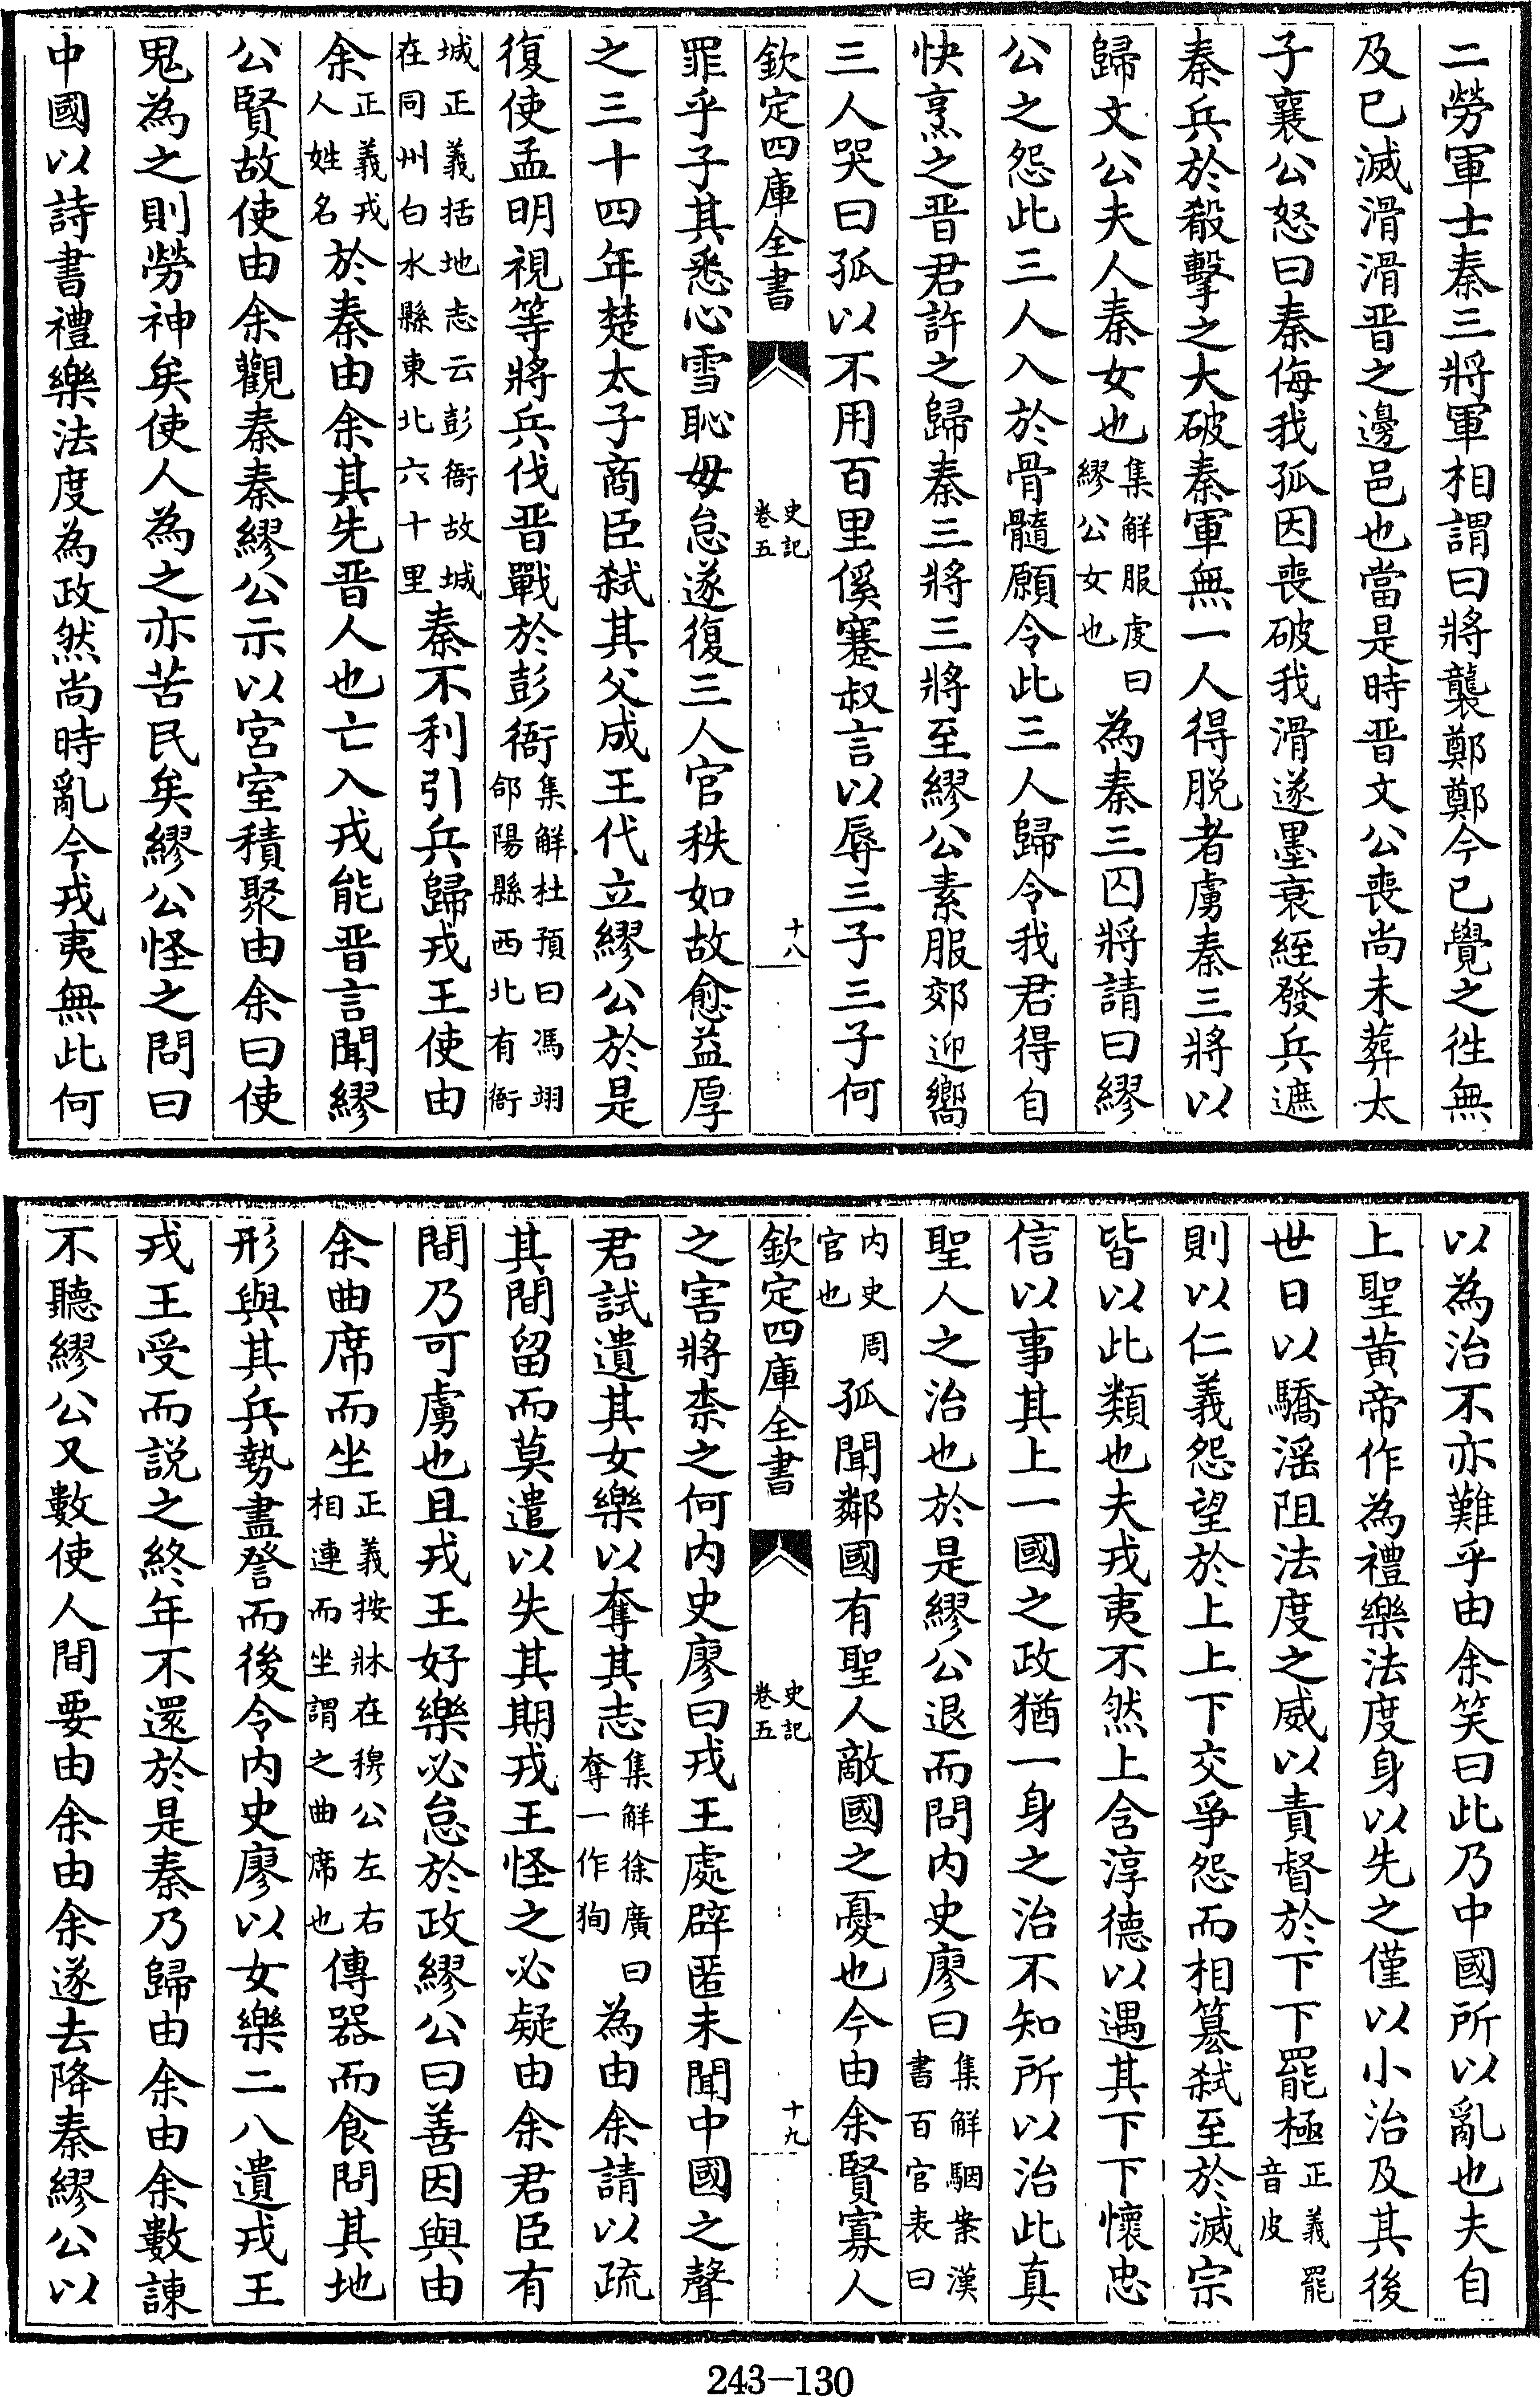 二勞軍士秦三將軍相謂曰將襲鄭鄭今已覺之徃無
及已滅滑滑晋之邊邑也當是時晋文公喪尚未葬太
子襄公怒曰秦侮我孤因喪破我滑遂墨衰絰發兵遮
秦兵於殽擊之大破秦軍無一人得脱者虜秦三將以
歸文公夫人秦女也集解服虔曰繆公女也為秦三囚將請曰繆
公之怨此三人入於骨髓願令此三人歸令我君得自
快烹之晋君許之歸秦三將三將至繆公素服郊迎嚮
三人哭曰孤以不用百里傒蹇叔言以辱三子三子何
欽定四庫全書 史記卷五 十八
罪乎子其悉心雪恥毋怠遂復三人官秩如故愈益厚
之三十四年楚太子商臣弑其父成王代立繆公於是
復使孟明視等將兵伐晋戰於彭衙集解杜預曰馮翊郃陽縣西北有衙
城正義括地志云彭衙故城在同州白水縣東北六十里秦不利引兵歸戎王使由
余正義戎人姓名於秦由余其先晋人也亡入戎能晋言聞繆
公賢故使由余觀秦秦繆公示以宮室積聚由余曰使
鬼為之則勞神矣使人為之亦苦民矣繆公怪之問曰
中國以詩書禮樂法度為政然尚時亂今戎夷無此何
以為治不亦難乎由余笑曰此乃中國所以亂也夫自
上聖黄帝作為禮樂法度身以先之僅以小治及其後
世日以驕滛阻法度之威以責督於下下罷極正義罷音皮
則以仁義怨望於上上下交爭怨而相簒弑至於滅宗
皆以此類也夫戎夷不然上含淳德以遇其下下懷忠
信以事其上一國之政猶一身之治不知所以治此真
聖人之治也於是繆公退而問内史廖曰集解駰案漢書百官表曰
内史周官也孤聞鄰國有聖人敵國之憂也今由余賢寡人
欽定四庫全書 史記卷五 十九
之害將柰之何内史廖曰戎王處辟匿未聞中國之聲
君試遺其女樂以奪其志集解徐廣曰奪一作徇為由余請以疏
其間留而莫遣以失其期戎王怪之必疑由余君臣有
間乃可虜也且戎王好樂必怠於政繆公曰善因與由
余曲席而坐正義按牀在穆公左右相連而坐謂之曲席也傳器而食問其地
形與其兵勢盡詧而後令内史廖以女樂二八遺戎王
戎王受而説之終年不還於是秦乃歸由余由余數諫
不聽繆公又數使人間要由余由余遂去降秦繆公以
243-130